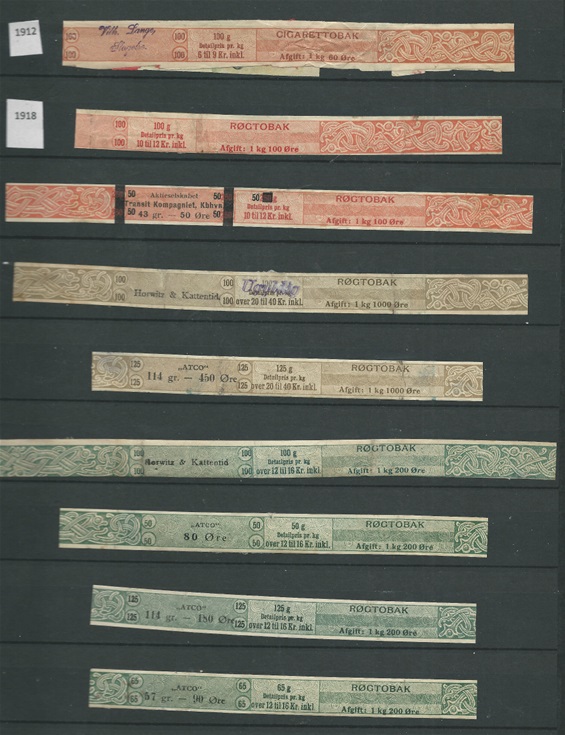 1912
100
100
Vilh. Lange,
100
100
100 g
Detailpris pr. kg
6 til 9 Kr. inkl.
CIGARETTOBAK
Afgift: 1 kg 60 Øre
1918
100
100
100 g
Detailpris pr. kg
10 til 12 Kr. inkl.
RØGTOBAK
Afgift: 1 kg 100 Øre
50 Aktieselskabet 50
Transit Kompagniet, Kbhvn.
50 43 gr. 50 Øre 50
50
10 til 12 Kr. inkl.
RØGTOBAK
Afgift: 1 kg 100 Øre
100
100
Horwitz & Kattentid
100
100
over 20 til 40 Kr. inkl.
RØGTOBAK
Afgift: 1 kg 1000 Øre
„ATCO"
114 gr. — 450 Øre
125
125
125 g
Detailpris pr. kg
over 20 til 40 Kr. inkl.
RØGTOBAK
Afgift: 1 kg 1000 Øre
100
100
Horwitz & Kattentid
100
100
100 g
Detailpris pr. kg
over 12 til 16 Kr. inkl.
RØGTOBAK
Afgift: 1 kg 200 Øre
50
50
„ATCO"
80 Øre
50
50
50 g
Detailpris pr. kg
over 12 til 16 Kr. inkl.
RØGTOBAK
Afgift: 1 kg 200 Øre
125
125
„ATCO"
114 gr. — 180 Øre
125
125
125 g
Detailpris pr. kg
over 12 til 16 Kr. inkl.
RØGTOBAK
Afgift: 1 kg 200 Øre
65
65
„ATCO"
57 gr. — 90 Øre
65
65
65 g
Detailpris pr. kg
over 12 til 16 Kr. inkl.
RØGTOBAK
Afgift: 1 kg 200 Øre